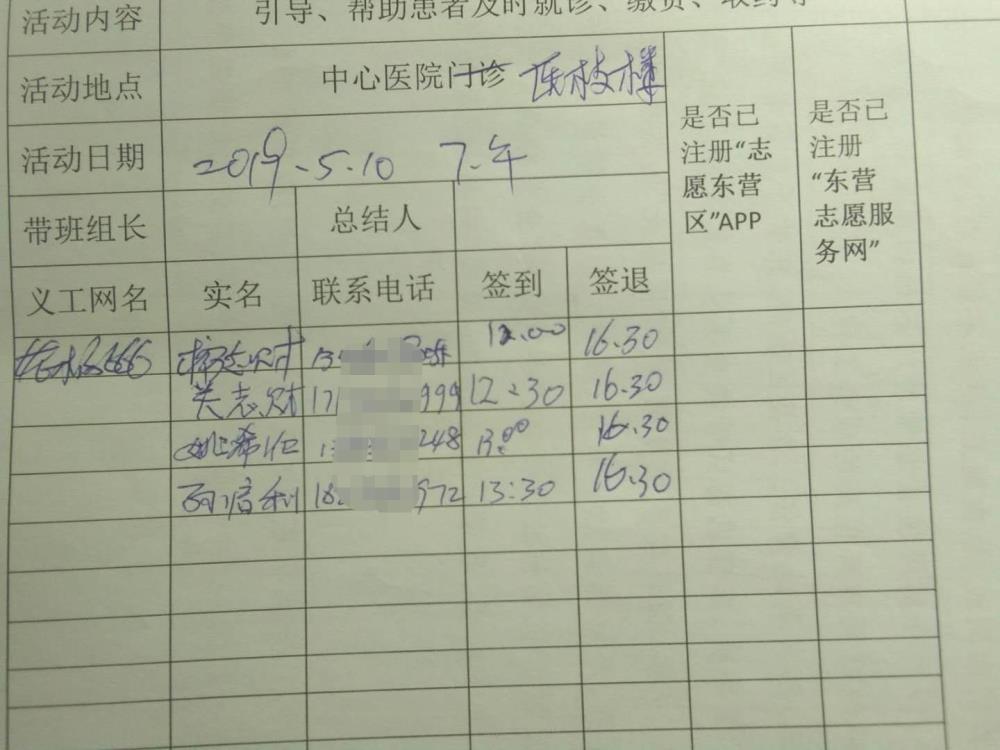 活动内容 引导、帮助患者及时就诊、缴费、取药等
活动地点 中心医院门诊 医技楼
活动日期 2019.5.10 下午
带班组长 总结人
是否已注册“志愿东营区”APP
是否已注册“东营志愿服务网”
义工网名 实名 联系电话 签到 签退
12.00 16.30
关志财 17 999 12:30 16.30
姚希仁 1 248 13:00 16.30
利 18 972 13:30 16.30